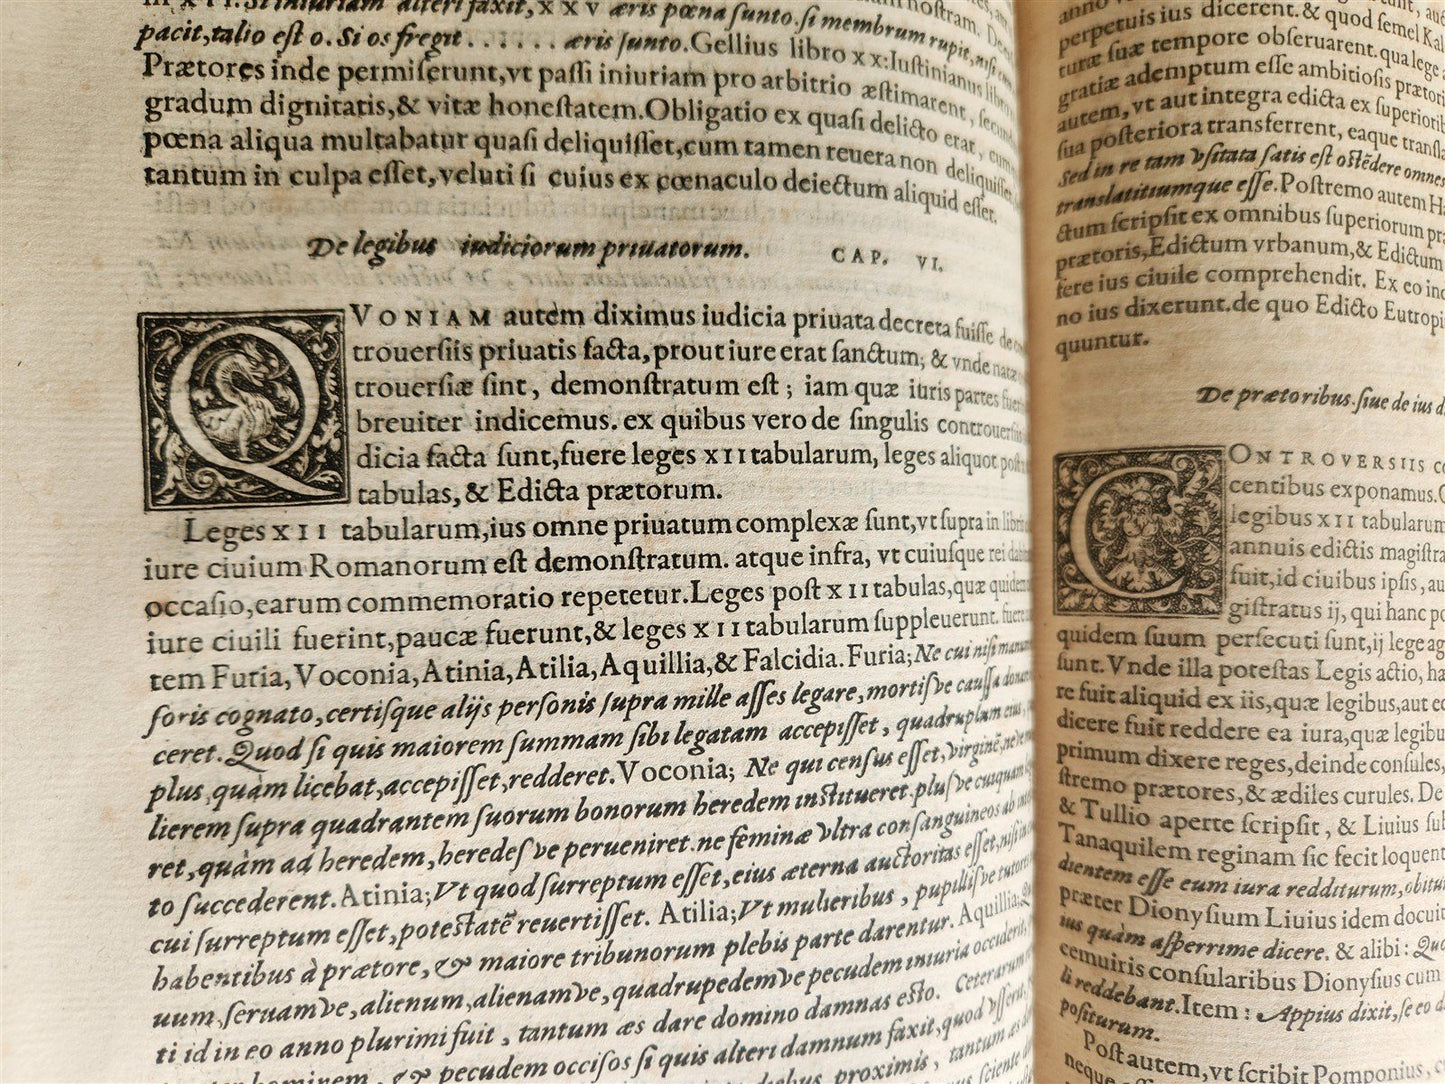 Si iniuriam alteri faxit, x x v æris pœna sunto. si membrum rupit, nisi cum
pacit, talio est o. Si os fregit . . . . . . æris sunto. Gellius libro x x: Iustinianus libro
Prætores inde permiserunt, vt passi iniuriam pro arbitrio æstimarent, secund
gradum dignitatis, & vitæ honestatem. Obligatio ex quasi delicto erat, cum
pœna aliqua multabatur quasi deliquisset, cum tamen reuera non deliquisset
tantum in culpa esset, veluti si cuius ex cœnaculo deiectum aliquid esset.
De legibus iudiciorum priuatorum. CAP. VI.
QVONIAM autem diximus iudicia priuata decreta fuisse de con
trouersiis priuatis facta, prout iure erat sanctum; & vnde natæ
trouersiæ sint, demonstratum est; iam quæ iuris partes fueri
breuiter indicemus. ex quibus vero de singulis controuersiis
dicia facta sunt, fuere leges XII tabularum, leges aliquot post
tabulas, & Edicta prætorum.
Leges XII tabularum, ius omne priuatum complexæ sunt, vt supra in libris
iure ciuium Romanorum est demonstratum. atque infra, vt cuiusque rei dabitur
occasio, earum commemoratio repetetur. Leges post XII tabulas, quæ quidem
iure ciuili fuerint, paucæ fuerunt, & leges XII tabularum suppleuerunt. fuere
tem Furia, Voconia, Atinia, Atilia, Aquillia, & Falcidia. Furia; Ne cui nisi manum
soris cognato, certisque alijs personis supra mille asses legare, mortisve caussa donare
ceret. Quod si quis maiorem summam sibi legatam accepisset, quadruplum eius,
plus, quàm licebat, accepisset, redderet. Voconia; Ne qui census esset, virginẽ, neve mu
lierem supra quadrantem suorum bonorum heredem institueret. plusve cuiquam
ret, quàm ad heredem, heredesve perueniret. ne feminæ vltra consanguineos ab
to succederent. Atinia; Vt quod surreptum esset, eius æterna auctoritas esset, nisi in
cui surreptum esset, potestatẽ reuertisset. Atilia; Vt mulieribus, pupillisve tutores
habentibus à prætore, & maiore tribunorum plebis parte darentur. Aquillia; Q
uum, seruamve, alienum, alienamve, quadrupedemve pecudem iniuria occiderit,
ti id in eo anno plurimi fuit, tantum æs dare domino damnas esto. Ceterarum
hominem, & pecudem occisos si quis alteri damnum faxit, quod vsserit,
proximis, tantum æs
sciente
anno
perpetuis ius dicerent. & quod semel Kal
turæ suæ tempore obseruarent. qua lege
gratiæ ademptum esse ambitiosis prætori
autem, vt aut integra edicta ex superiorib
sua posteriora transferrent, eaque transla
Sed in re tam vsitata satis est ostẽdere omnes
translatitiumque esse. Postremo autem Ha
ctum scripsit ex omnibus superiorum pr
prætoris, Edictum vrbanum, & Edictum
fere ius ciuile comprehendit. Ex eo inc
no ius dixerunt. de quo Edicto Eutropi
quuntur.
De prætoribus. siue de ius d
CONTROVERSIIS co
centibus exponamus. C
legibus XII tabularum
annuis edictis magistra
fuit, id ciuibus ipsis, au
gistratus ij, qui hanc po
quidem suum persecuti sunt, ij lege ag
sunt. Vnde illa potestas Legis actio, ha
re fuit aliquid ex iis, quæ legibus, aut ec
dicere fuit reddere ea iura, quæ legibu
primum dixere reges, deinde consules,
stremo prætores, & ædiles curules. De
& Tullio aperte scripsit, & Liuius sub
Tanaquilem reginam sic fecit loquent
dientem esse eum iura redditurum, obitur
præter Dionysium Liuius idem docuit
ius quàm asperrime dicere. & alibi: Quo
cemuiris consularibus Dionysius cum
li reddebant. Item: Appius dixit, se eo d
positurum.
Post autem, vt scribit Pomponius,
neque